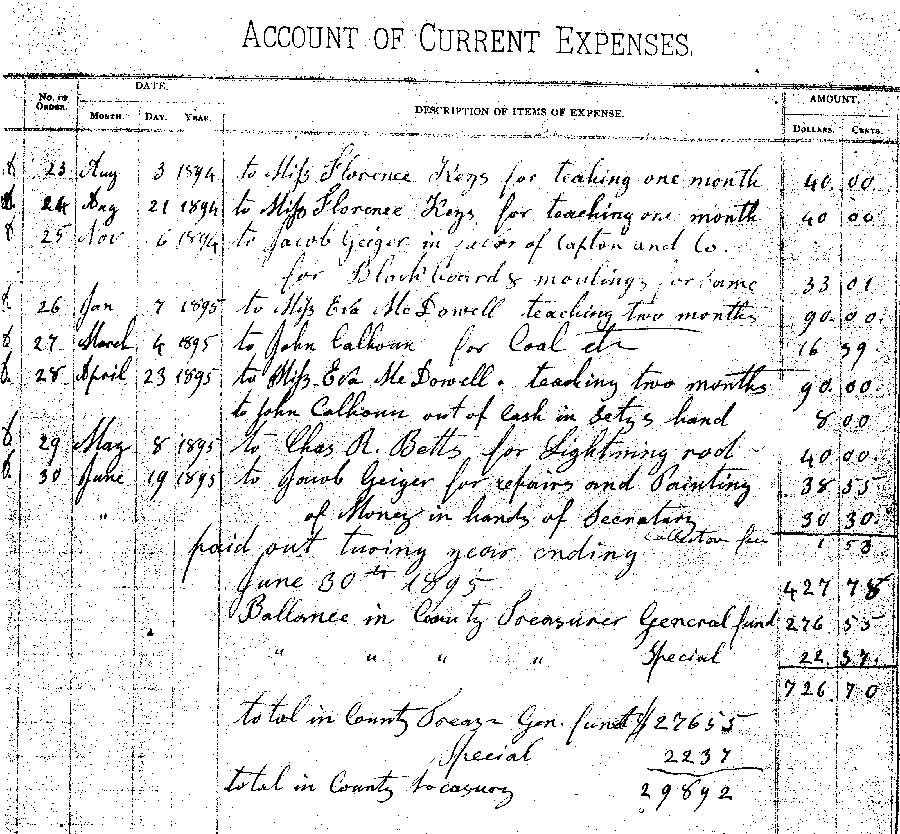 ACCOUNT OF CURRENT EXPENSES.
No. of ORDER. DATE. MONTH. DAY. YEAR. DESCRIPTION OF ITEMS OF EXPENSE. AMOUNT. DOLLARS. CENTS.
23 Aug 3 1894 to Miss Florence Keys for teaking one month 40 00
24 Aug 21 1894 to Miss Florence Keys for teaching one month 40 00
25 Nov 6 1894 to Jacob Geiger in favor of Capton and Co.
for Blackboards moulings for same 33 01
26 Jan 7 1895 to Miss Eva McDowell teaching two months 90 00
27 March 4 1895 to John Calhoun for Coal etc 16 39
28 April 23 1895 to Miss Eva McDowell. teaching two months 90 00
to John Calhoun out of Cash in Setys hand 8 00
29 May 8 1895 to Chas R. Betts for Lightning rod 40 00
30 June 19 1895 to Jacob Geiger for repairs and Painting 38 55
" of Money in hands of Secretary 30 30
paid out turing year ending Collection fees 1 53
June 30th 1895 427 78
Ballance in County Treasurer General fund 276 55
" " " " Special 22 37
726 70
total in County Treazr Gen. fund $ 276 55
Special 22 37
total in County treasury 298 92